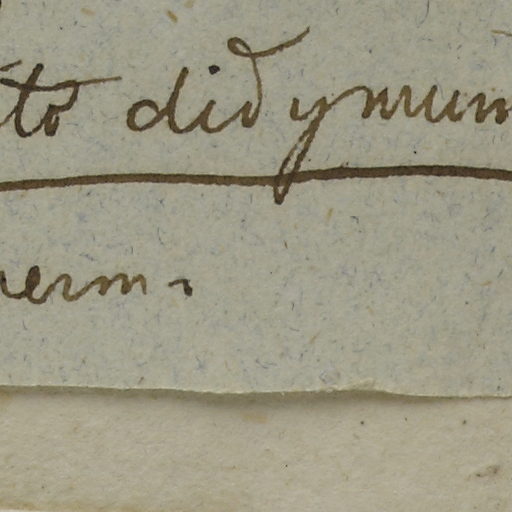 to didymum
erm.